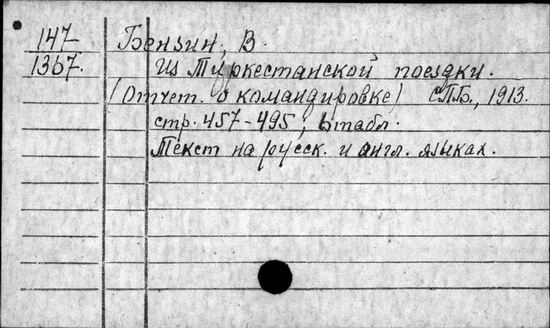 147 Бензин, В.
1367. Из Туркестанской поездки.
(Отчет о командировке) С.П.Б., 1913.
стр. 457-495, 6 табл.
Текст на русск. и англ. языках.